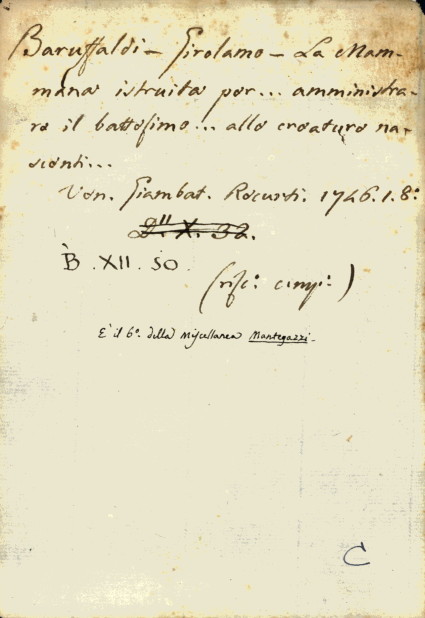 Baruffaldi - Girolamo - La Mam-
mana istruita per... amministra-
re il battesimo... alle creature na-
scenti...
Ven. Giambat. Recurti. 1746. 1. 8º
D" X. 32.
B. XII. 50.
È il 6º della Miscellanea Mantegazzi.
C